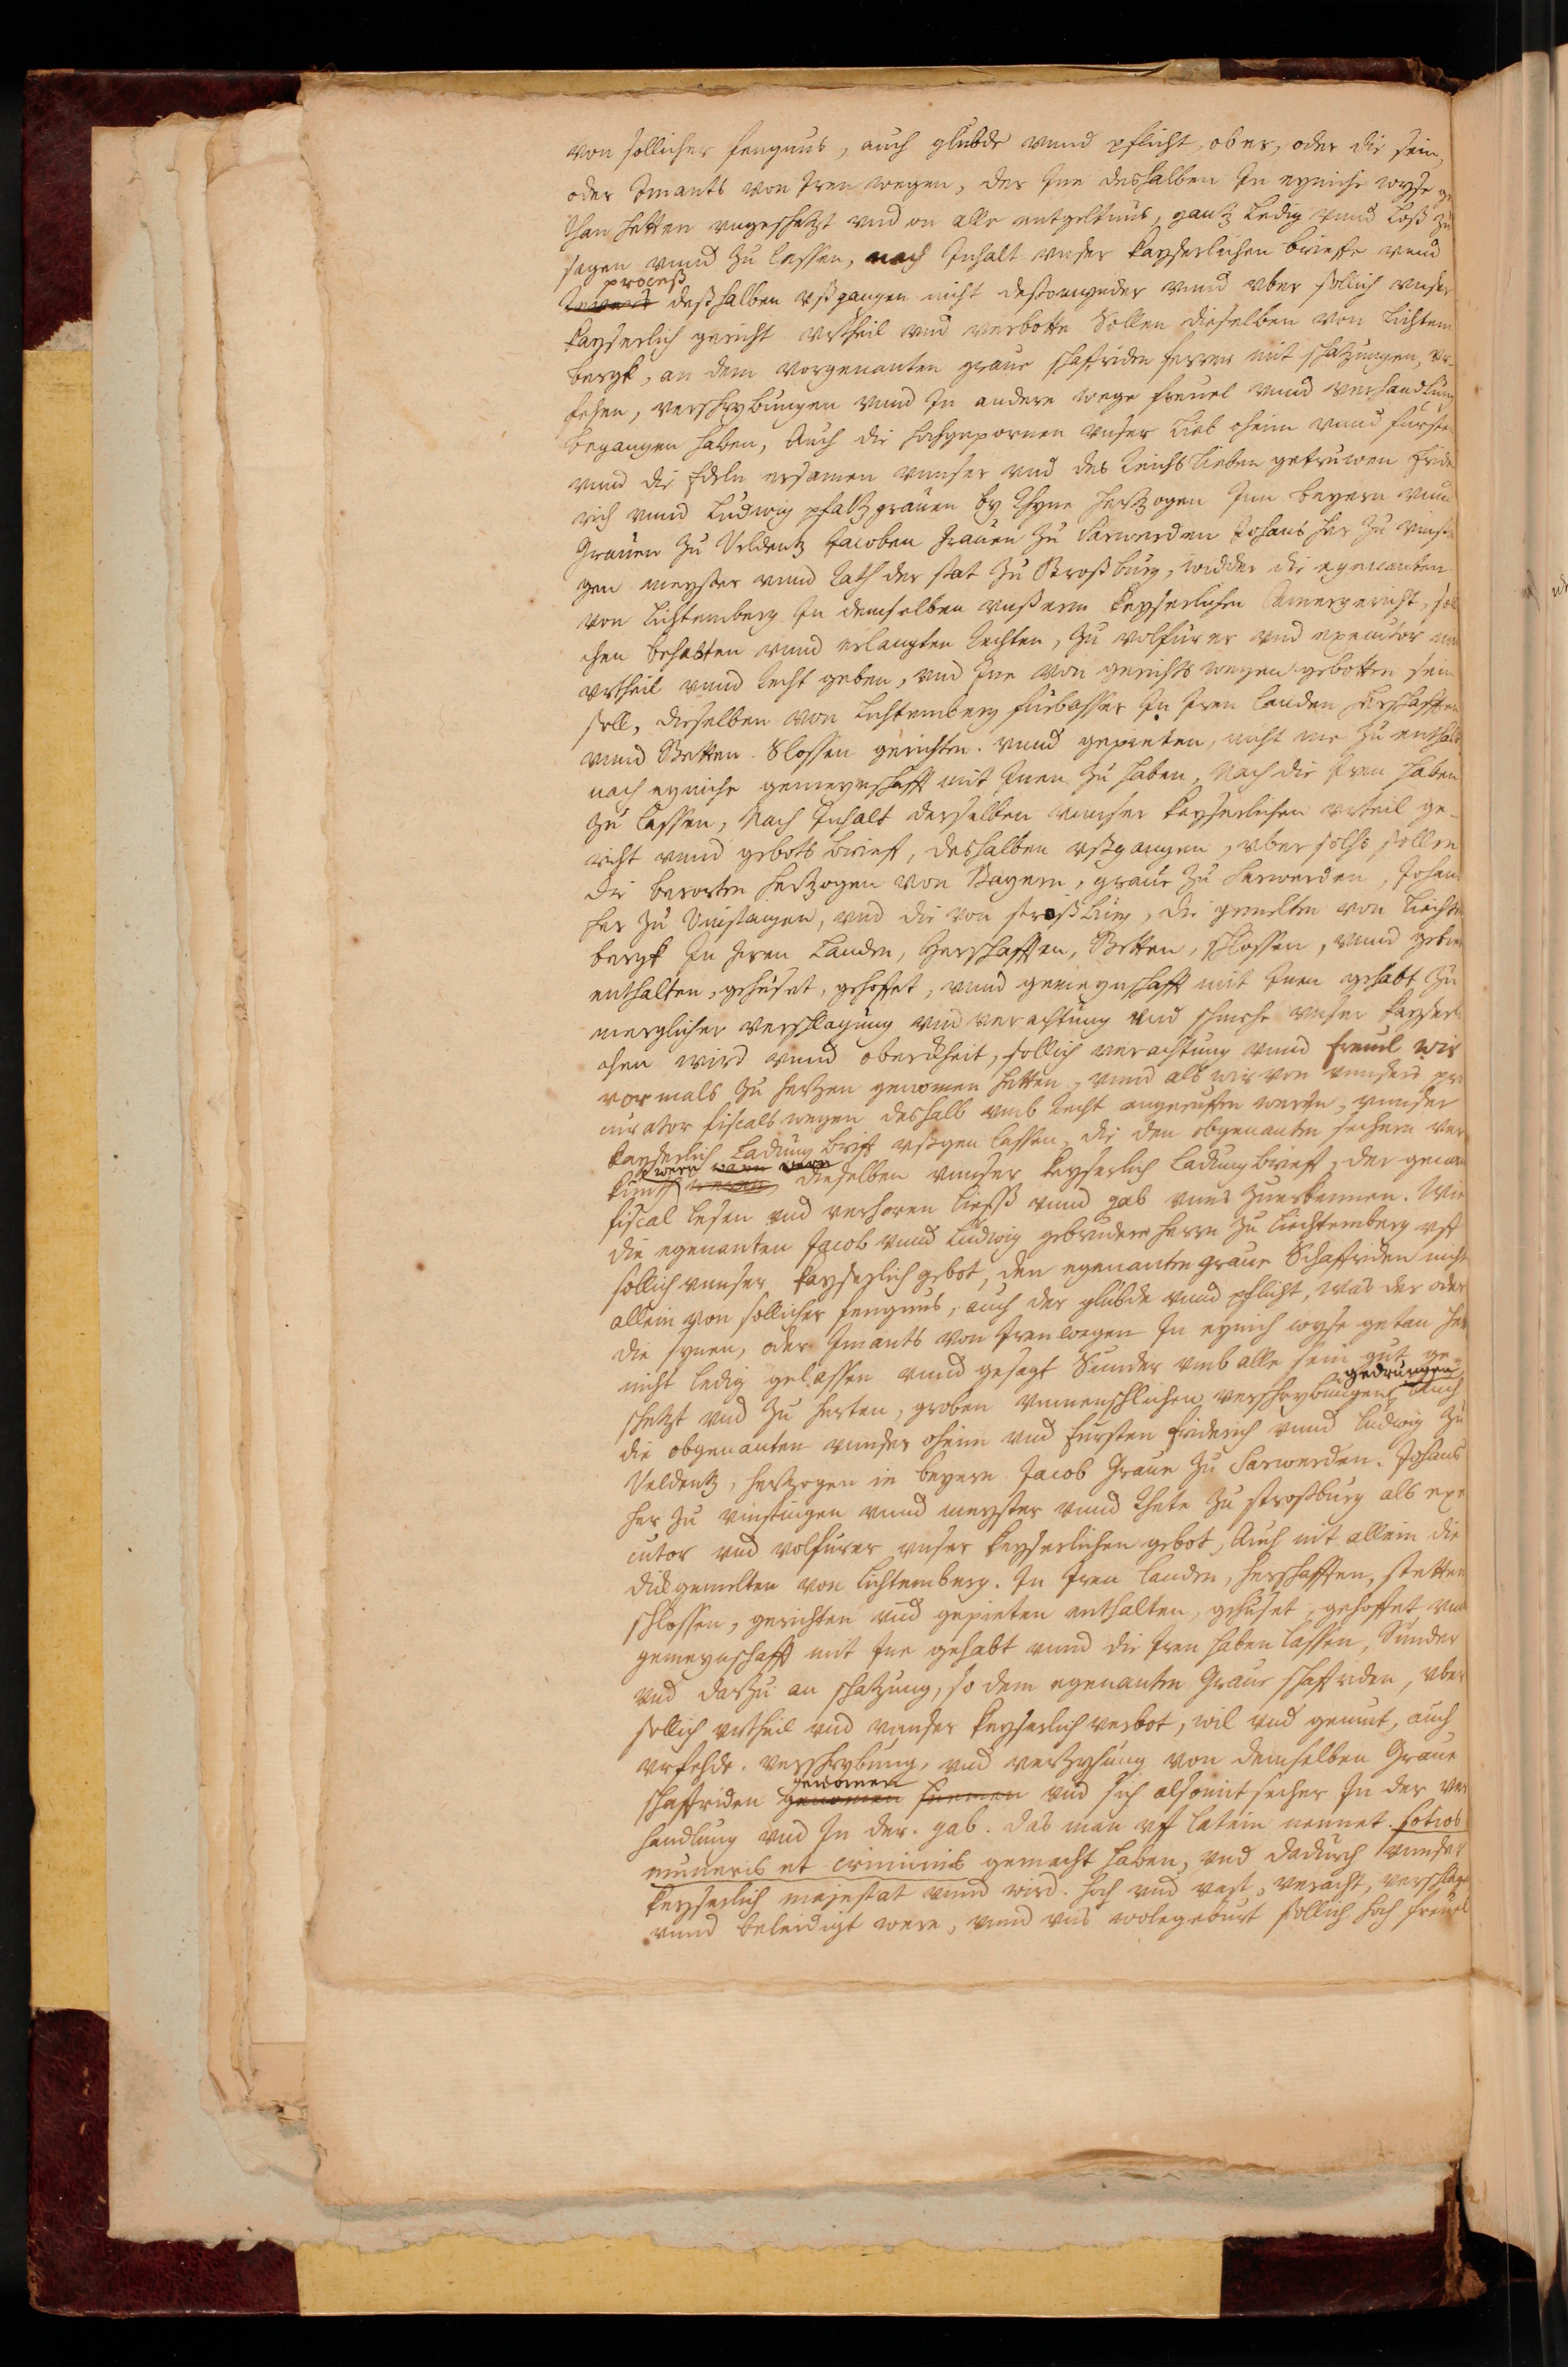 von sollicher fengnus, auch glubde vnnd pflicht, ober, oder die sein,
oder Jmants von Jren wegen, der Jne deshalben Jn eyniche wyse ge
than hetten vngeschetzt vnd on alle entgeltnus, gantz ledig vnnd loß zu
sagen vnnd zu lassen, nach Jnhalt vnser kayserlichen brieffe vnnd
proceß
deßhalben vßgangen nicht destomynder vnnd vber sollich vnser
kayserlich gericht vrtheil vnd verbotte Sollen dieselben von Lichtem
bergk, an dem vorgenanten graue schafriden ferrer mit schatzungen, vr-
fehen, verschrybungen vnnd Jn andere wege freuel vnnd verhandlung
begangen haben, Auch die hochgepornen vnser lieb oheim vnnd fürsten
vnnd die Edeln ersamen vnnser vnd des Reichs lieben getruwen Fride
rich vnnd Ludwig pfaltzgrauen by Rhyne hertzogen Jnn beyern vnnd
Grauen zu Veldentz Jacoben Grauen zu Sarwerden Johans her zu vinstin
gen meyster vnnd Rath der stat zu Stroßburg, widder die egenanten
von Lichtemberg Jn demselben vnßerm keyserlichen Camergericht, sol
chen behabten vnnd erlangten Rechten, zu volfürer vnd executor mit
vrtheil vnnd recht geben, vnd Jne von gerichts wegen gebotten sein
soll, dieselben von Lichtemberg fürbasser Jn Jren landen herschafften
vnnd Stetten Slossen gerichten vnnd gepieten, nicht me zu enthalt
noch eyniche gemeynschafft mit Jnen zu haben, Noch die Jren haben
zu lassen, Nach Jnhalt derselben vnnser keyserlichen vrteil ge-
richt vnnd gebots brieff, deshalben vßgangen, vber solchs sollen
die berorten hertzogen von Bayern, graue zu Sarwerden, Johans
her zu Vinstingen, vnd die von stroßburg, die gemelten von Liechtem
bergk Jn Jren Landen, Herschafften, Stetten, schlossen, vnnd gebiet
enthalten, gehuset, gehoffet, vnnd gemeynschafft mit Jnen gehabt zu
merglicher verschlagung vnd verachtung vnd schmehe vnser kayserli
chen wird vnnd oberckheit, sollich verachtung vnnd freuel wir
vormals zu hertzen genomen hetten, vnnd als wir von vnnsers pro
curator fiscals wegen deshalb vmb Recht angeruffen werden, vnnser
kayserlich Ladung brieff vßgen lassen, die den obgenanten sechern ver
kundt wern wern were dieselben vnnser keyserlich Ladung brieff, der genant
fiscal lesen vnd verhoren liesß vnnd gab vnns zuerkennen. Wie
die egenanten Jacob vnnd Ludwig gebrudere herrn zu Liechtemberg vff
sollich vnnser kayserlich gebot, den egenanten graue Schaffriden nicht
allein von sollicher fengnus, auch der glubde vnnd pflicht, was der oder
die synen, oder Jmants von Jren wegen Jn eynich wyse getan hett
nicht ledig gelassen vnnd gesagt Sunder vmb alle sein gut ge-
gedrungen
schetzt vnd zu herten, groben vnmenschlichen verschrybungen, Auch
die obgenanten vnnser oheim vnd fursten Friderich vnnd Ludwig zu
Veldentz, hertzogen in beyern Jacob Graue zu Sarwerden. Johans
her zu vinstingen vnnd meyster vnnd Rhete zu stroßburg als exe
cutor vnd volfurer vnser keyserlichen gebot, Auch nit allein die
dickgemelten von Lichtemberg. Jn Jren landen, herschafften, stetten
schlossen, gerichten vnd gepieten enthalten, gehuset, gehoffet, vnd
gemeynschafft mit Jne gehabt vnnd die Jren haben lassen, Sunder
vnd dartzu an schatzung, so dem egenanten Graue schaffriden, vber
sollich vrtheil vnd vnnser keyserlich verbot, wil vnd gemut, auch
vrfehde. verschrybung, vnd vertzyhung von demselben Graue
genomen
schaffriden genomen vnd sich alsomit secher Jn der ver
handlung vnd Jn der. gab. das man vff latein nennet. sotios
muneris et criminis gemacht haben, vnd dadurch vnnser
keyserlich majestat vnnd wird. hoch vnd vast, veracht, verschlagen
vnnd beleidigt were, vnnd vns wolegeburt sollich hoch freuel